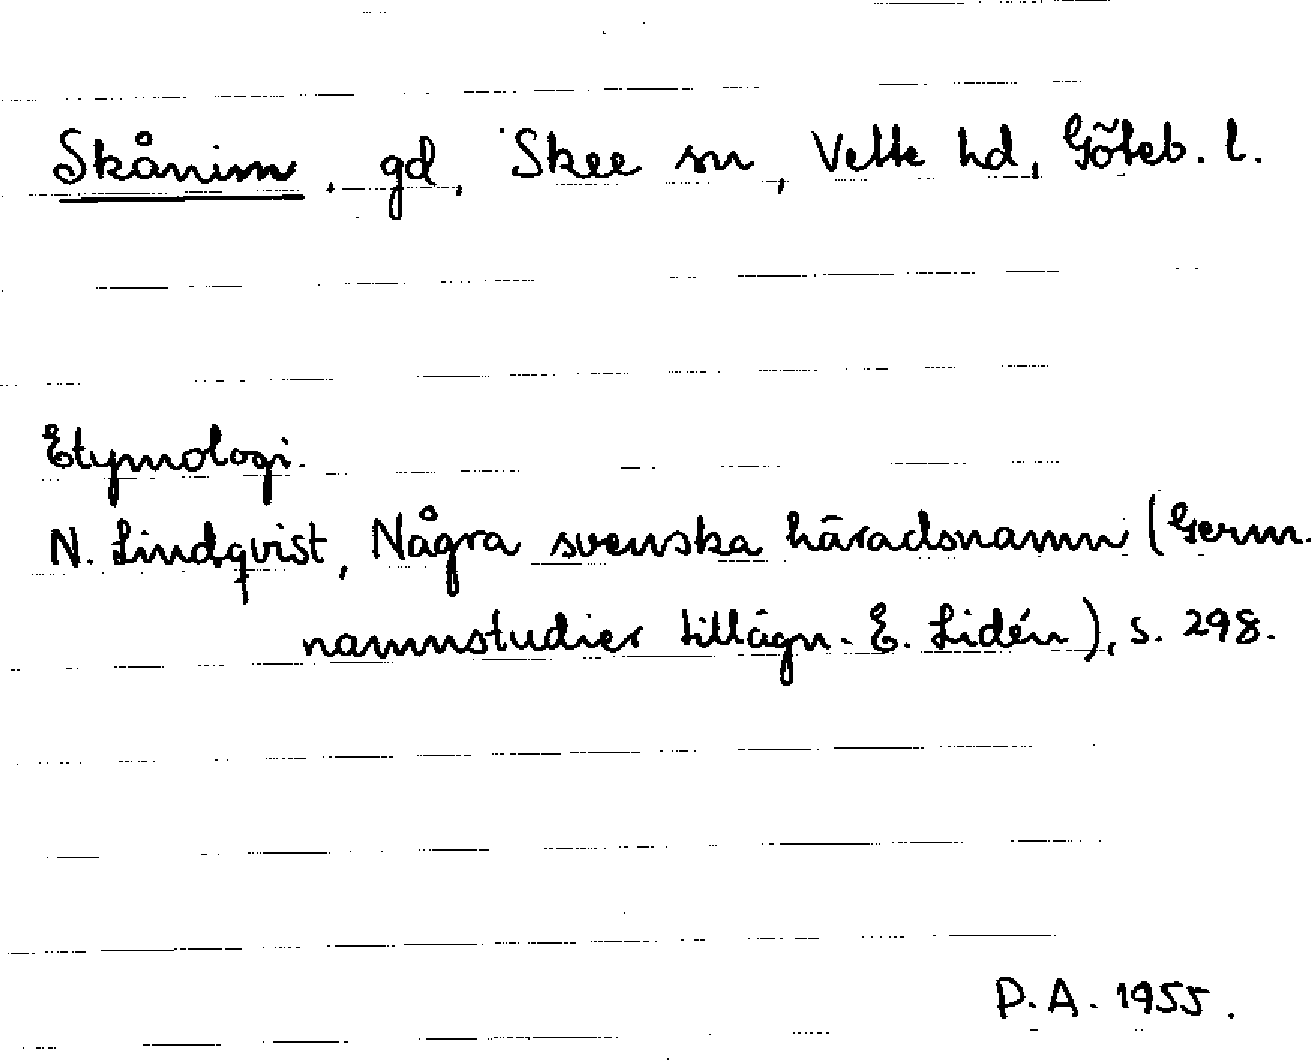 Skånim, gd, Skee sn, Vette hd, Göteb. l.
Etymologi.
N. Lindqvist, Några svenska häradsnamn (Germ.
namnstudier tillägn. E. Lidén), s. 298.
P.A. 1955.